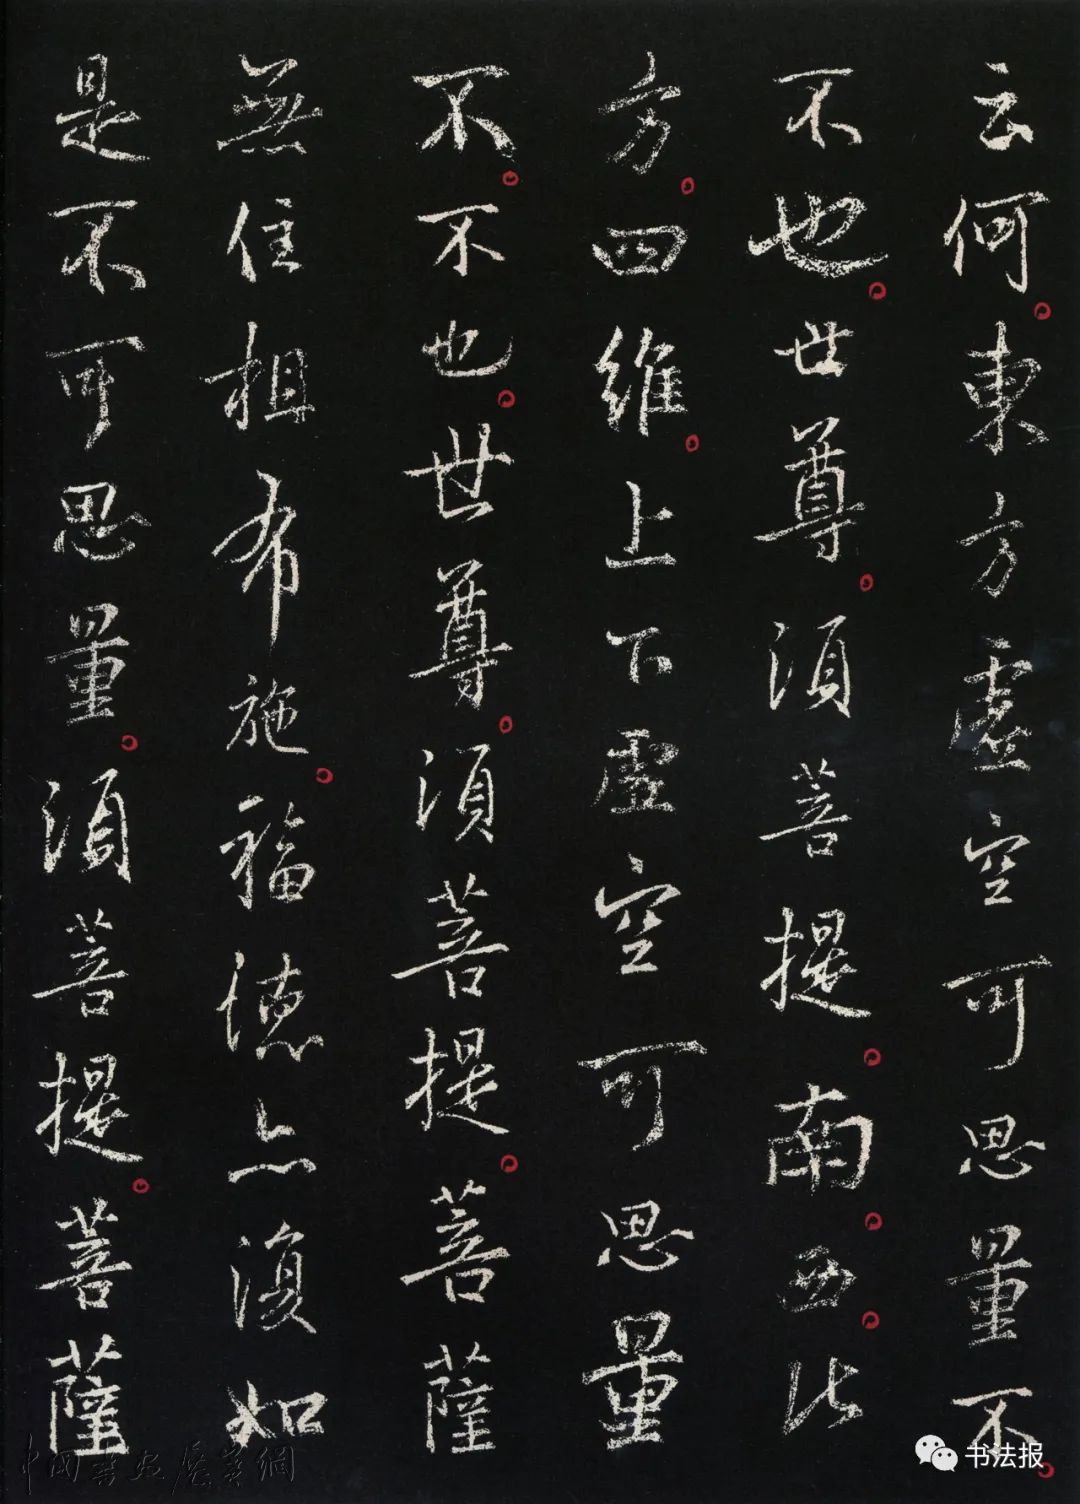 云何東方虛空可思量不
不也世尊須菩提南西北
方四維上下虛空可思量
不不也世尊須菩提菩薩
無住相布施福德亦復如
是不可思量須菩提菩薩
书法报